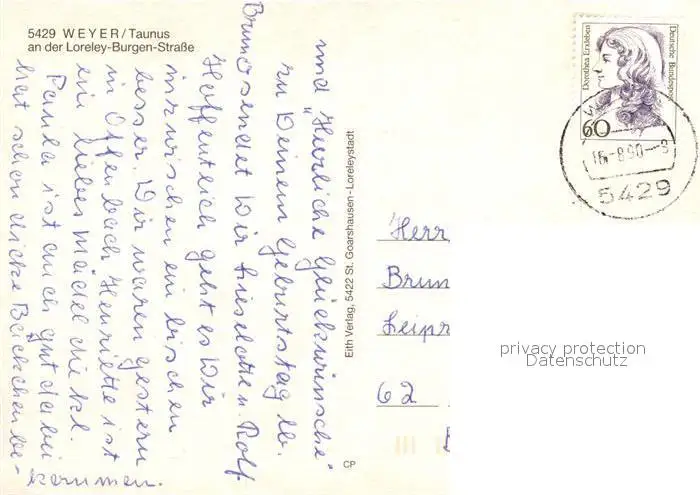 5429 WEYER / Taunus
an der Loreley-Burgen-Straße
und „Herzliche Glückwünsche"
zu Deinem Geburtstag lb.
Bruno sendet Dir Lieselotte u. Rolf.
Hoffentlich geht es Dir
inzwischen ein bischen
besser. Wir waren gestern
in Offenbach Henriette ist
ein liebes Mädel die kl.
Paula ist auch gut dabei
hat schon dicke Bäckchen be-
kommen.
Eith Verlag, 5422 St. Goarshausen-Loreleystadt
CP
Dorothea Erxleben
Deutsche Bundespost
60
16.-8.90--8
5429
Herr
Brun
Leipz
62
privacy protection
Datenschutz